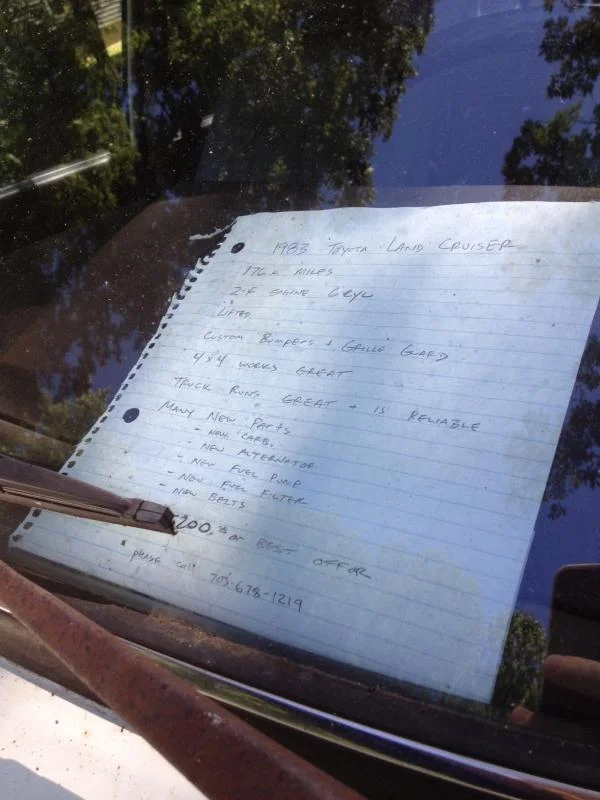 1983 TOYOTA LAND CRUISER
176 K MILES
2-F ENGINE 6 CYL
LIFTED
CUSTOM BUMPERS + GRILLE GUARD
4x4 WORKS GREAT
TRUCK RUNS GREAT + IS RELIABLE
MANY NEW PARTS
- NEW CARB.
- NEW ALTERNATOR
- NEW FUEL PUMP
- NEW FUEL FILTER
- NEW BELTS
200.00 or BEST OFFOR
please call 703-678-1219